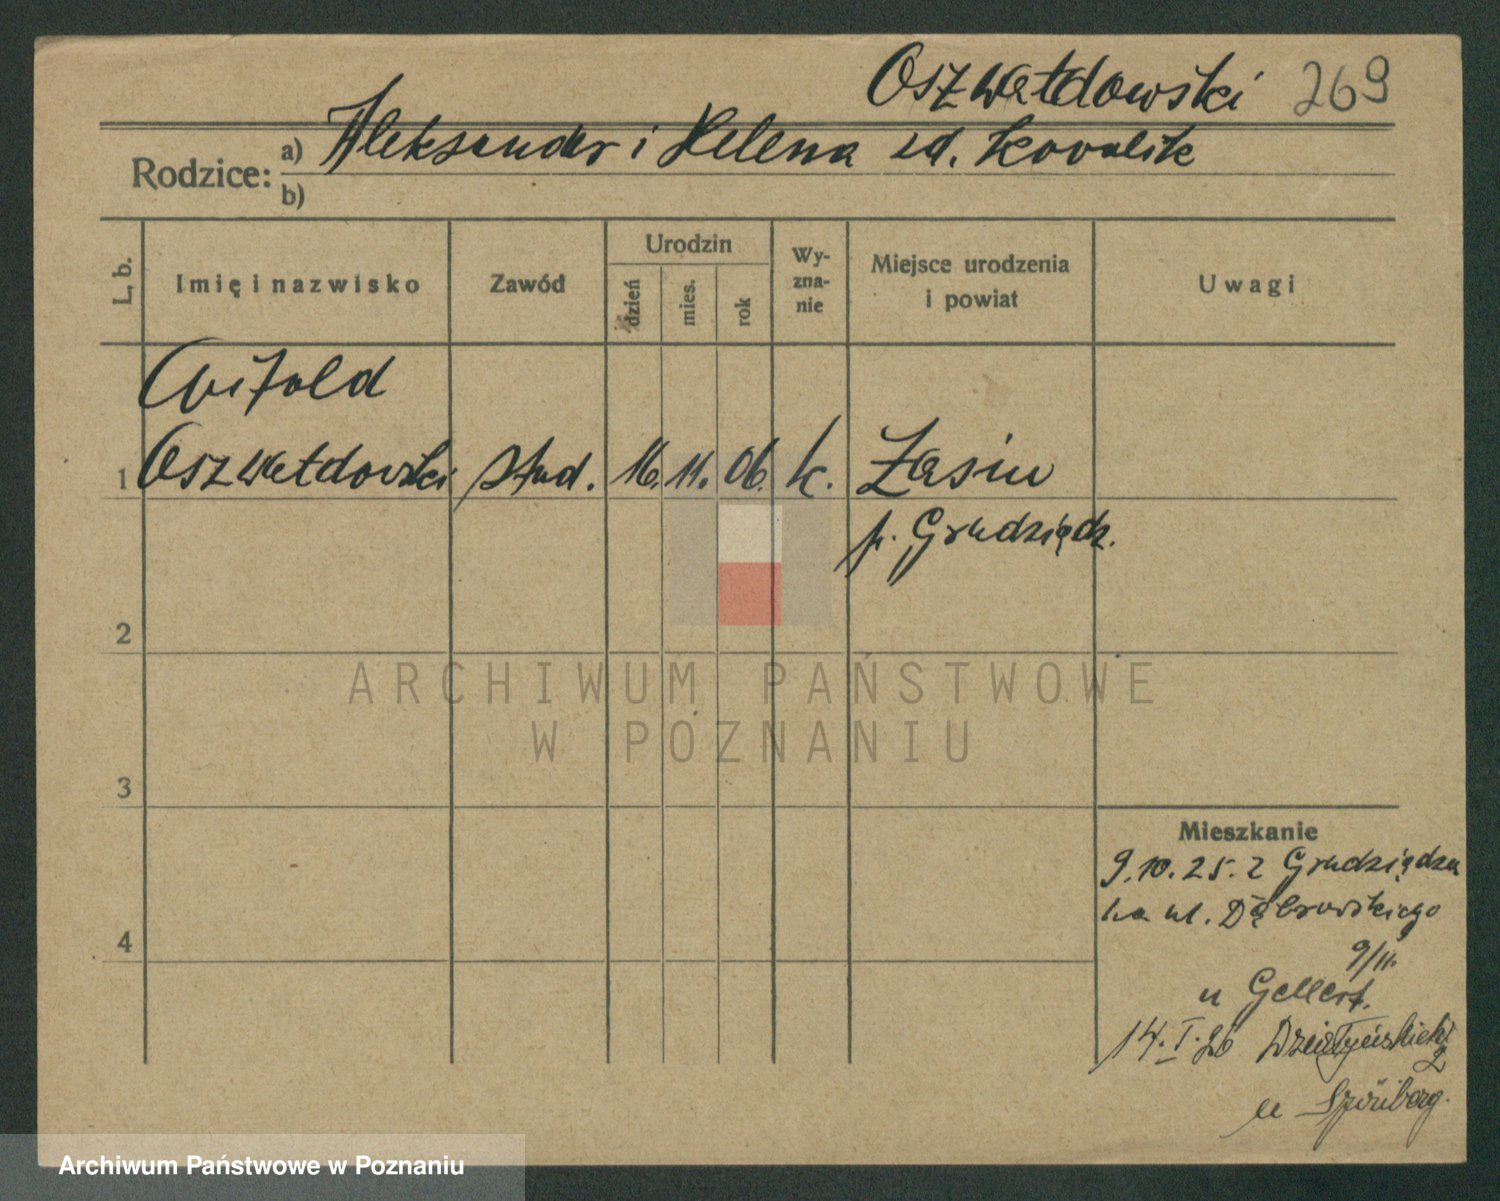 Oszwałdowski 269
Rodzice: a) Aleksander i Helena zd. Kowalik
b)
L. b. Imię i nazwisko Zawód Urodzin dzień mies. rok Wy-zna-nie Miejsce urodzenia i powiat Uwagi
Witold
1 Oszwałdowski stud. 16. 11. 06. k. Zasin
p. Grudziądz.
2
ARCHIWUM PAŃSTWOWE
W POZNANIU
3
Mieszkanie
9.10.25. z Grudziądza
na ul. Dąbrowskiego
9/11.
4
u Gellert.
14.I.26 Działyńskich
2
u
Archiwum Państwowe w Poznaniu